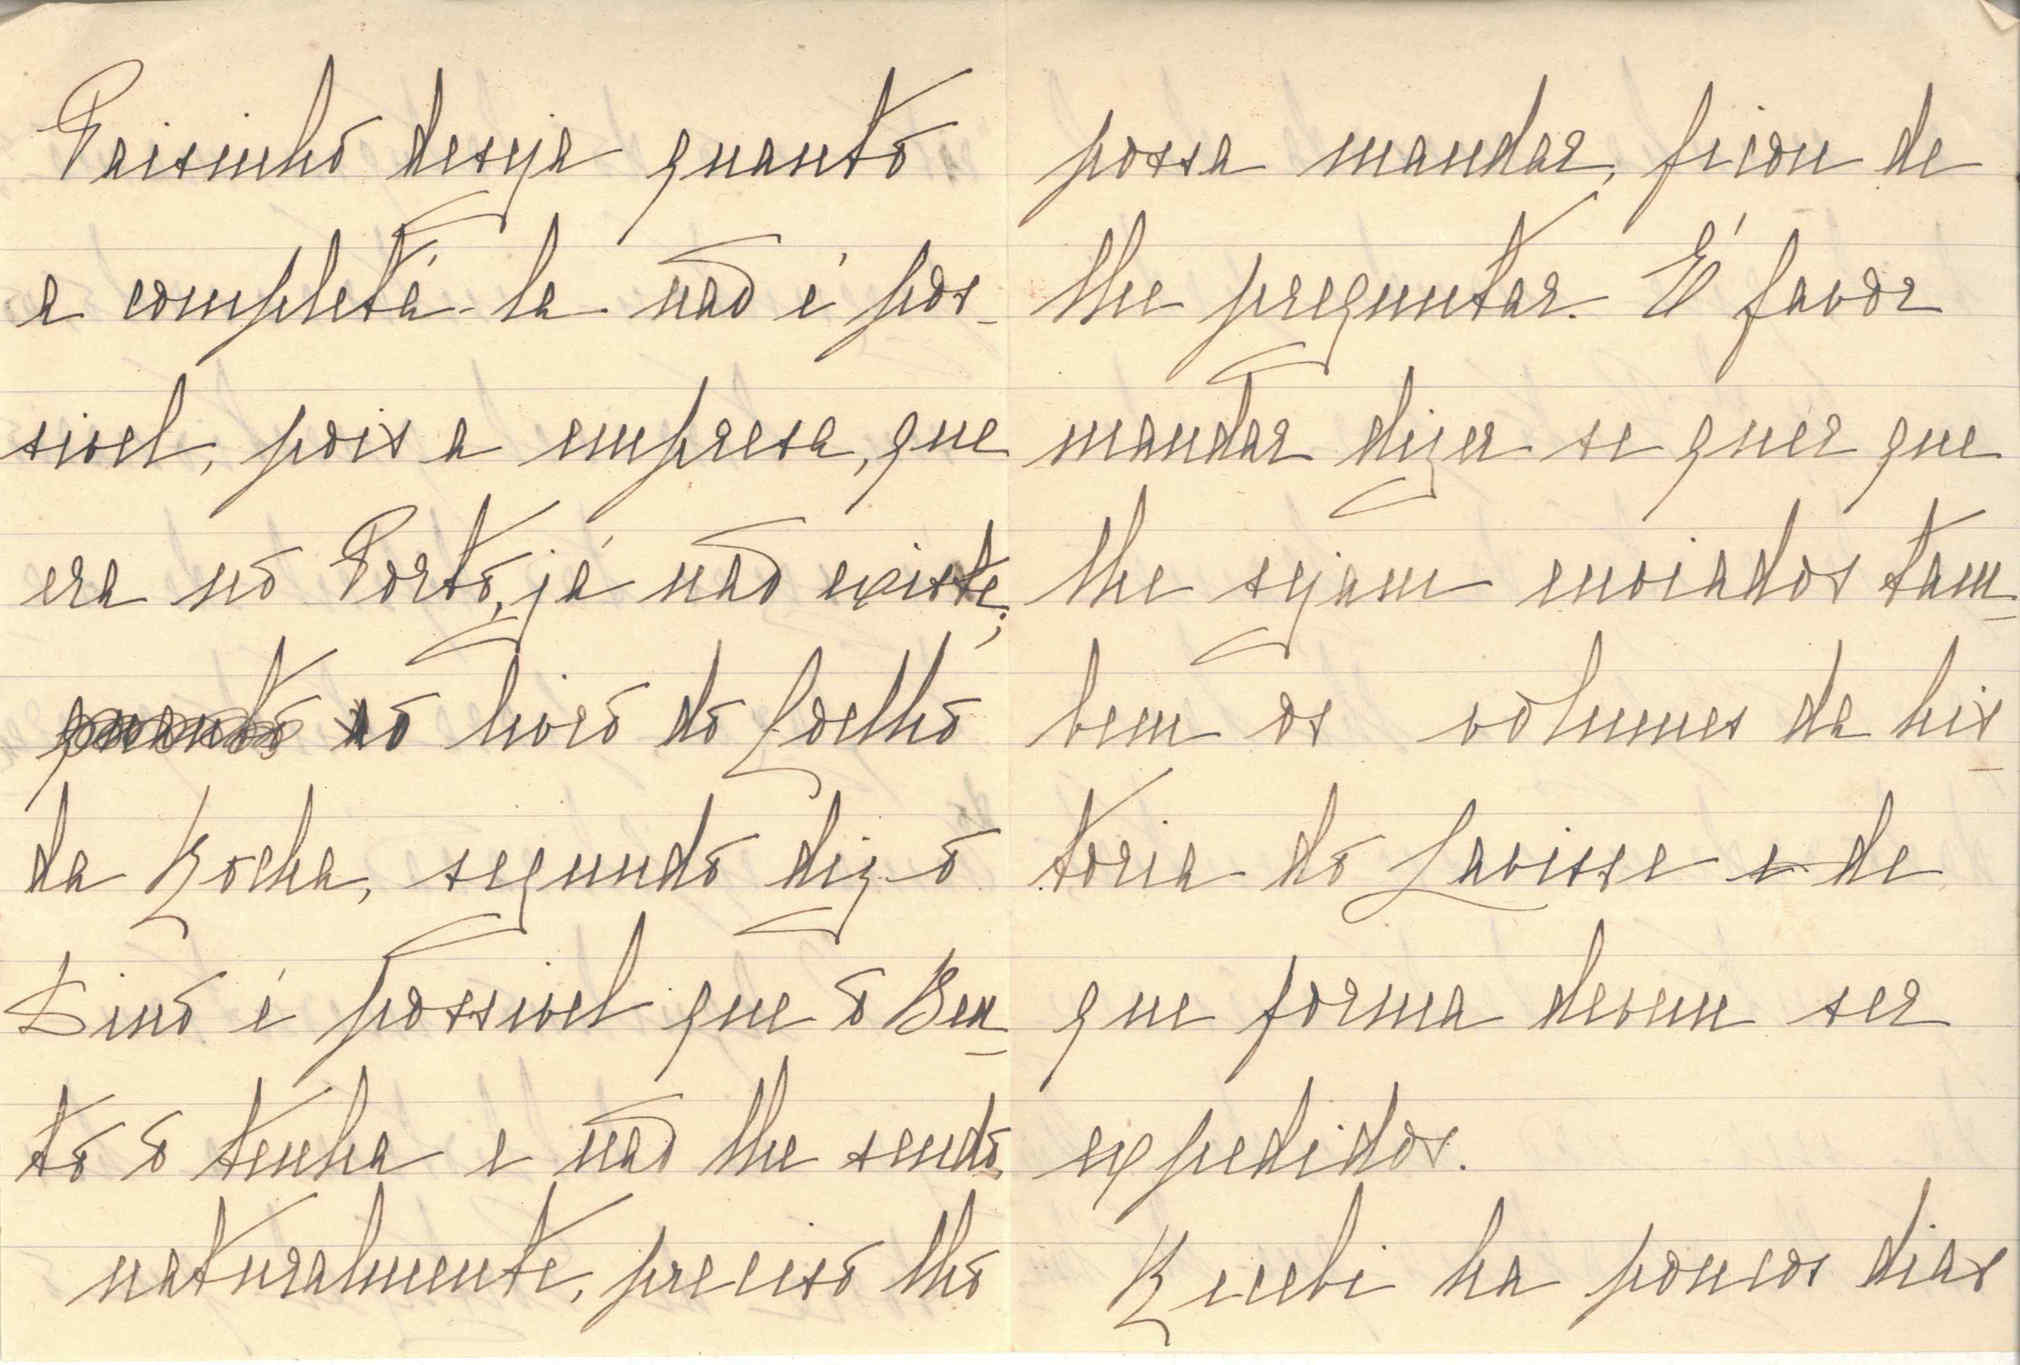 Paisinho deseja quanto
a completá-la não é pos-
sivel, pois a empresa, que
era no Porto, já não existe;
quanto ao livro do Coelho
da Rocha, segundo diz o
Dino é possivel que o Ben-
to o tenha e não lhe sendo,
naturalmente, preciso lho
possa mandar, ficou de
lhe preguntar. É favor
mandar dizer se quer que
lhe sejam enviados tam-
bem os volumes da his-
toria do Lavisse e de
que forma devem ser
expedidos.
Recebi ha poucos dias